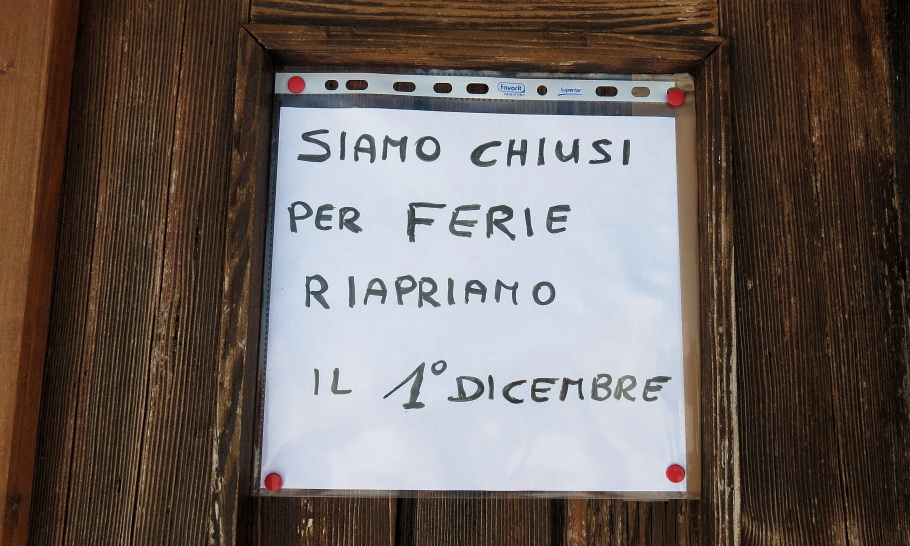 favorit
Superior
SIAMO CHIUSI
PER FERIE
RIAPRIAMO
IL 1° DICEMBRE